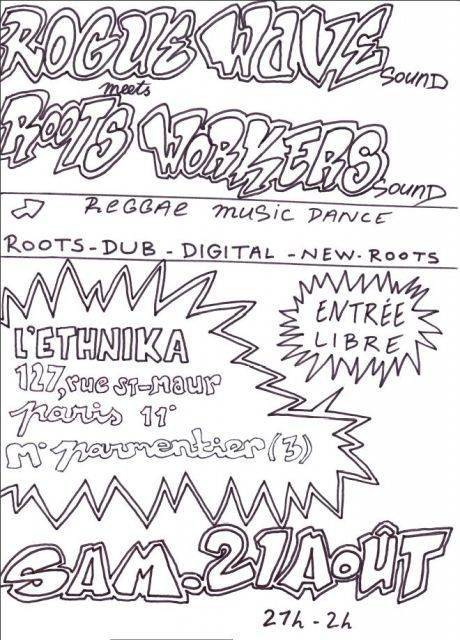 ROGUE WAVE SOUND
meets
ROOTS WORKERS SOUND
REGGAE MUSIC DANCE
ROOTS-DUB-DIGITAL-NEW-ROOTS
ENTRÉE
LIBRE
L'ETHNIKA
127, rue ST-Maur
paris 11°
M° parmentier (3)
SAM. 21 AOÛT
21h - 2h